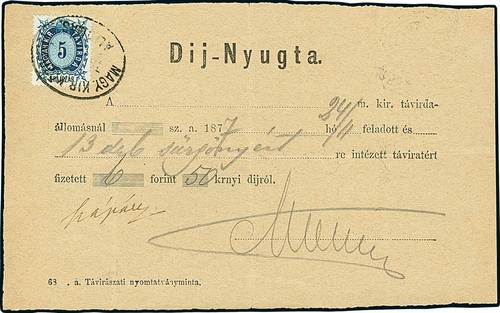 MAGY. KIR. TÁVIRDA
5
MAGY. KIR.
Dij-Nyugta.
A 24/ m. kir. távirda-
állomásnál sz. a. 1877 hó /4 feladott és
13 db sürgönyért re intézett táviratért
fizetett 6 forint 50 krnyi dijról.
63 . á. Távirászati nyomtatványminta.